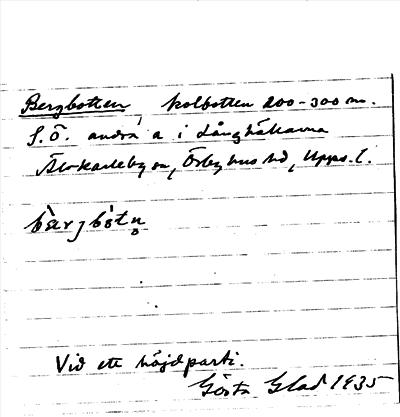 Bergbotten, kolbotten 200-300 m.
S.Ö. andra a i Långhällarna
Älvkarleby sn, Örbyhus hd, Upps. l.
bærjbòtn̥
Vid ett höjdparti.
Gösta Glad 1935